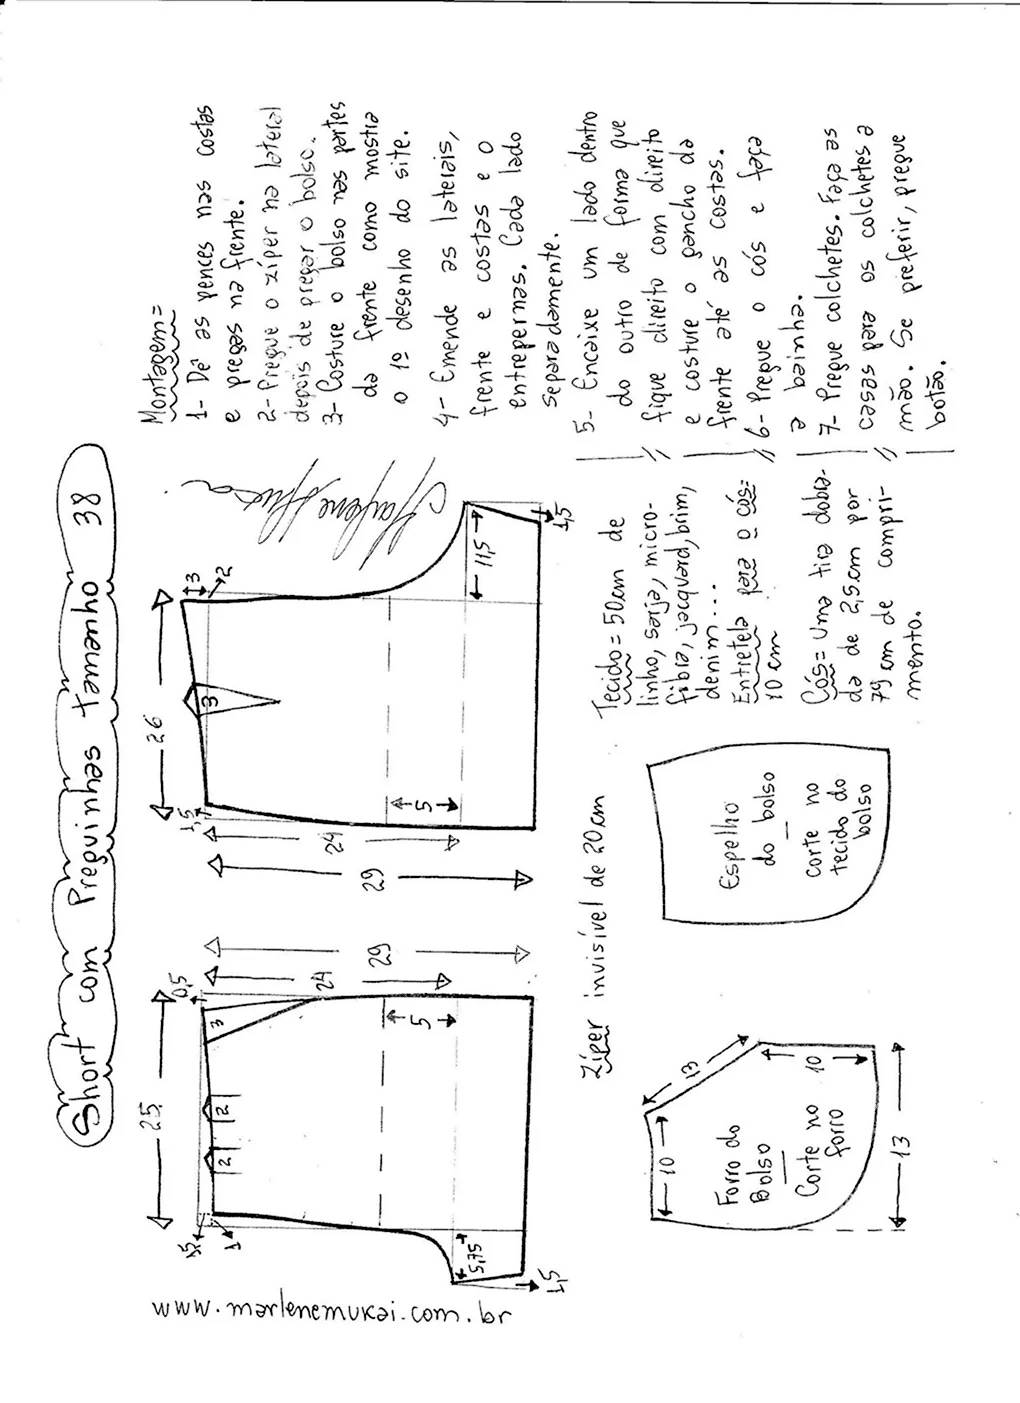 Short com Preguinhas tamanho 38
25
1,5
1
2
2
3
0,5
5
5,75
1,5
24
29
26
1,5
3
3
2
5
11,5
1,5
24
29
Marlene Mukai
www.marlenemukai.com.br
Montagem=
1- Dê as pences nas costas
e pregas na frente.
2- Pregue o zíper na lateral
depois de pregar o bolso.
3- Costure o bolso nas partes
da frente como mostra
o 1º desenho do site.
4- Emende as laterais,
frente e costas e o
entrepernas. Cada lado
separadamente.
5- Encaixe um lado dentro
do outro de forma que
fique direito com direito
e costure o gancho da
frente até as costas.
6- Pregue o cós e faça
a bainha.
7- Pregue colchetes. Faça as
casas para os colchetes a
mão. Se preferir, pregue
botão.
Zíper invisível de 20cm
Tecido= 50cm de
linho, sarja, micro-
fibra, jacquard, brim,
denim...
Entretela para o cós=
10 cm
Cós= Uma tira dobra-
da de 2,5cm por
79 cm de compri-
mento.
Forro do
Bolso
—
Corte no
forro
10
13
10
13
Espelho
do bolso
—
corte no
tecido do
bolso